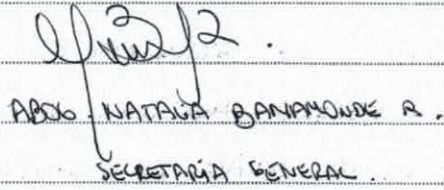 ABDG NATALIA BAHAMONDE R.
SECRETARIA GENERAL.